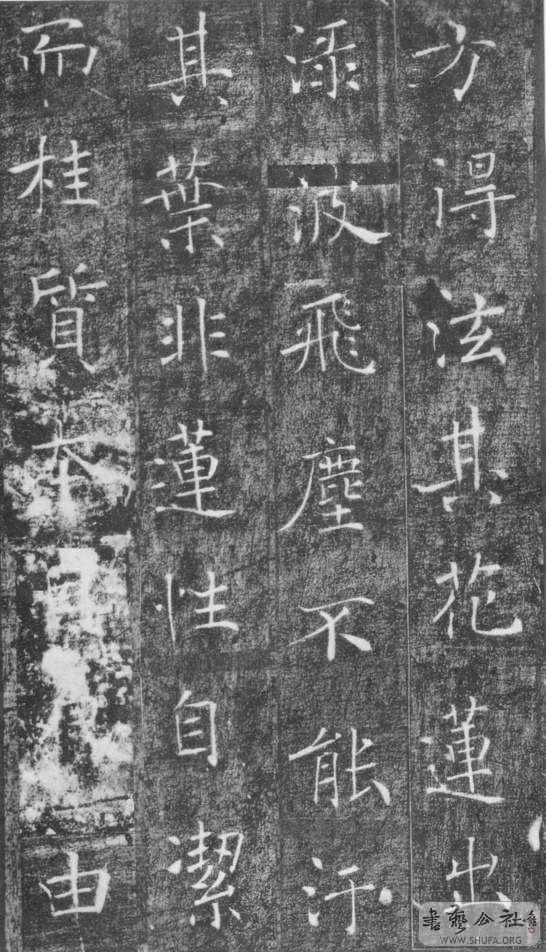 方得泫其花蓮出
淥波飛塵不能汙
其葉非蓮性自潔
而桂質本由
書藝公社
WWW.SHUFA.ORG